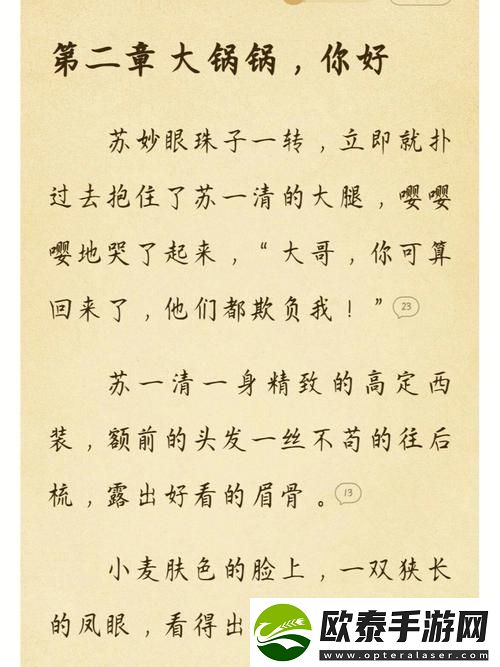 第二章 大锅锅，你好
苏妙眼珠子一转，立即就扑
过去抱住了苏一清的大腿，嘤嘤
嘤地哭了起来，“大哥，你可算
回来了，他们都欺负我！”23
苏一清一身精致的高定西
装，额前的头发一丝不苟的往后
梳，露出好看的眉骨。13
小麦肤色的脸上，一双狭长
的凤眼，看得出
欧泰手游网
www.opteralaser.com